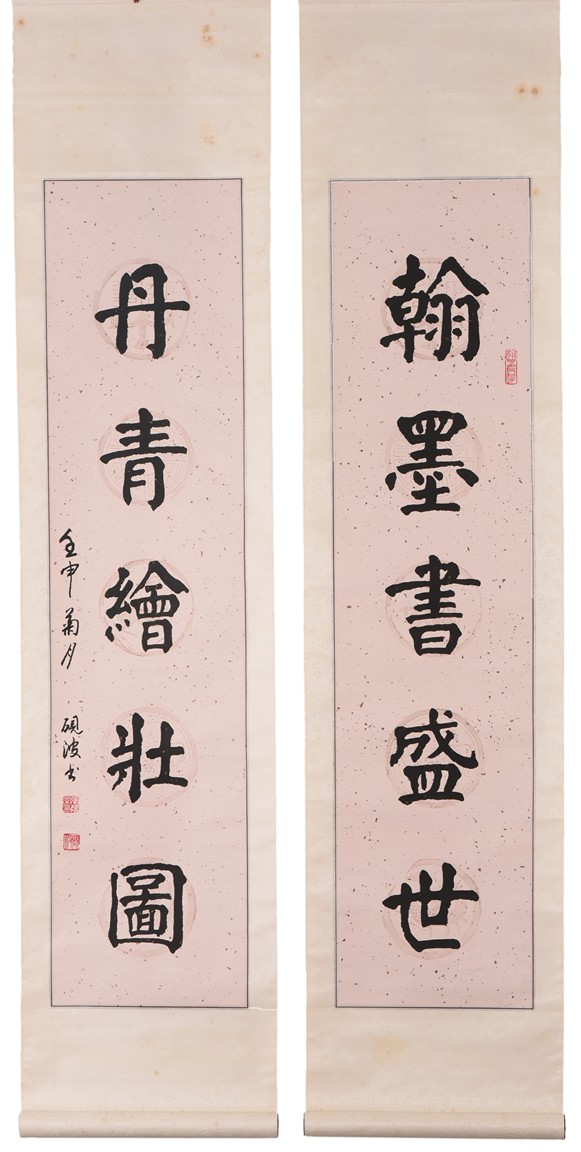 翰墨書盛世
丹青繪壯圖
壬申菊月 硯波书